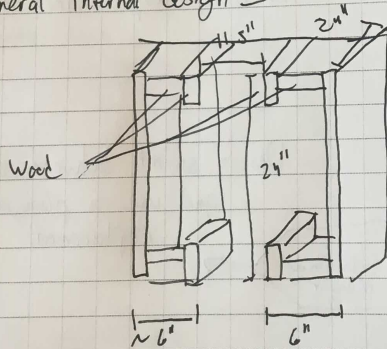 neral Internal Design
24"
Wood
24"
~ 6"
6"